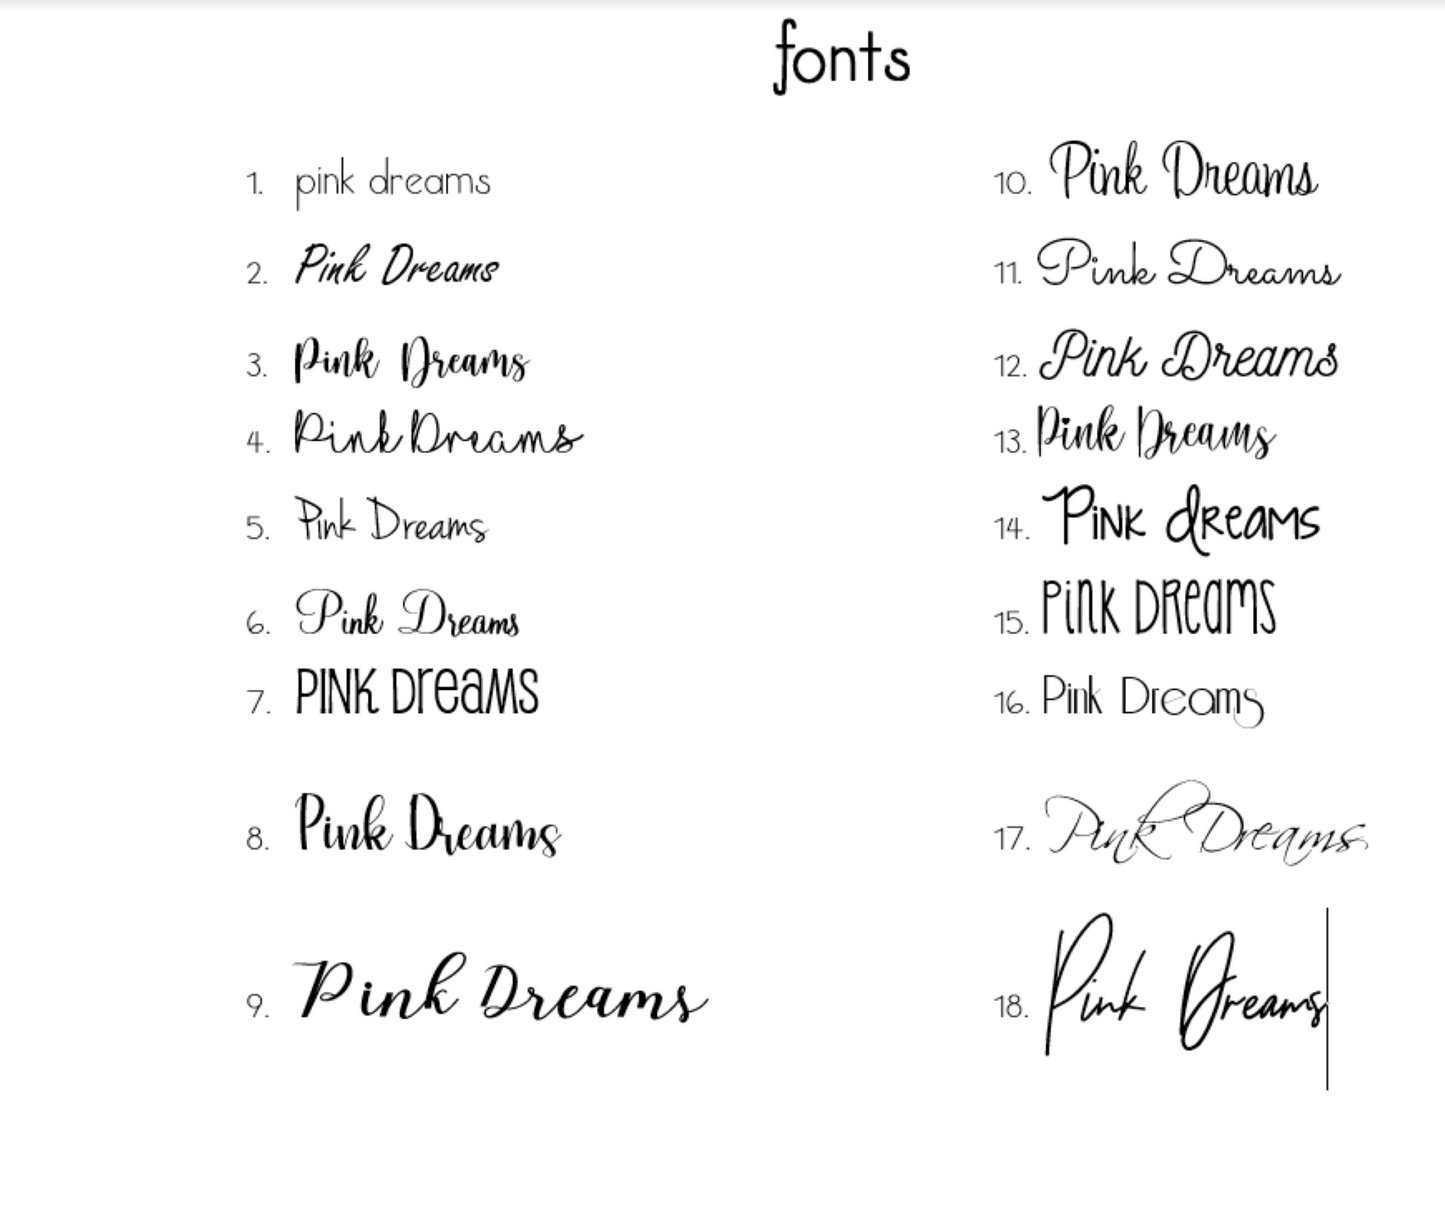 fonts
1. pink dreams
2. Pink Dreams
3. Pink Dreams
4. Pink Dreams
5. Pink Dreams
6. Pink Dreams
7. PINK DreaMS
8. Pink Dreams
9. Pink Dreams
10. Pink Dreams
11. Pink Dreams
12. Pink Dreams
13. Pink Dreams
14. PiNK dReaMS
15. PinK DReamS
16. Pink Dreams
17. Pink Dreams
18. Pink Dreams